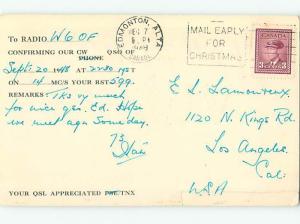 EDMONTON, ALTA
DEC 7
CANADA
MAIL EARLY
FOR
CHRISTMAS
3
To RADIO W6OF
CONFIRMING OUR CW QSO OF
PHONE
Sept. 20 1948 AT 2230 MST
ON 14 MC'S YOUR RST 599.
REMARKS: Tks vy much
for nice qso. Ed. Hope
we meet agn Someday.
73
YOUR QSL APPRECIATED TNX
E. L. Lamoureux
1120 N. Kings Rd.
Los Angeles
Cal.
USA